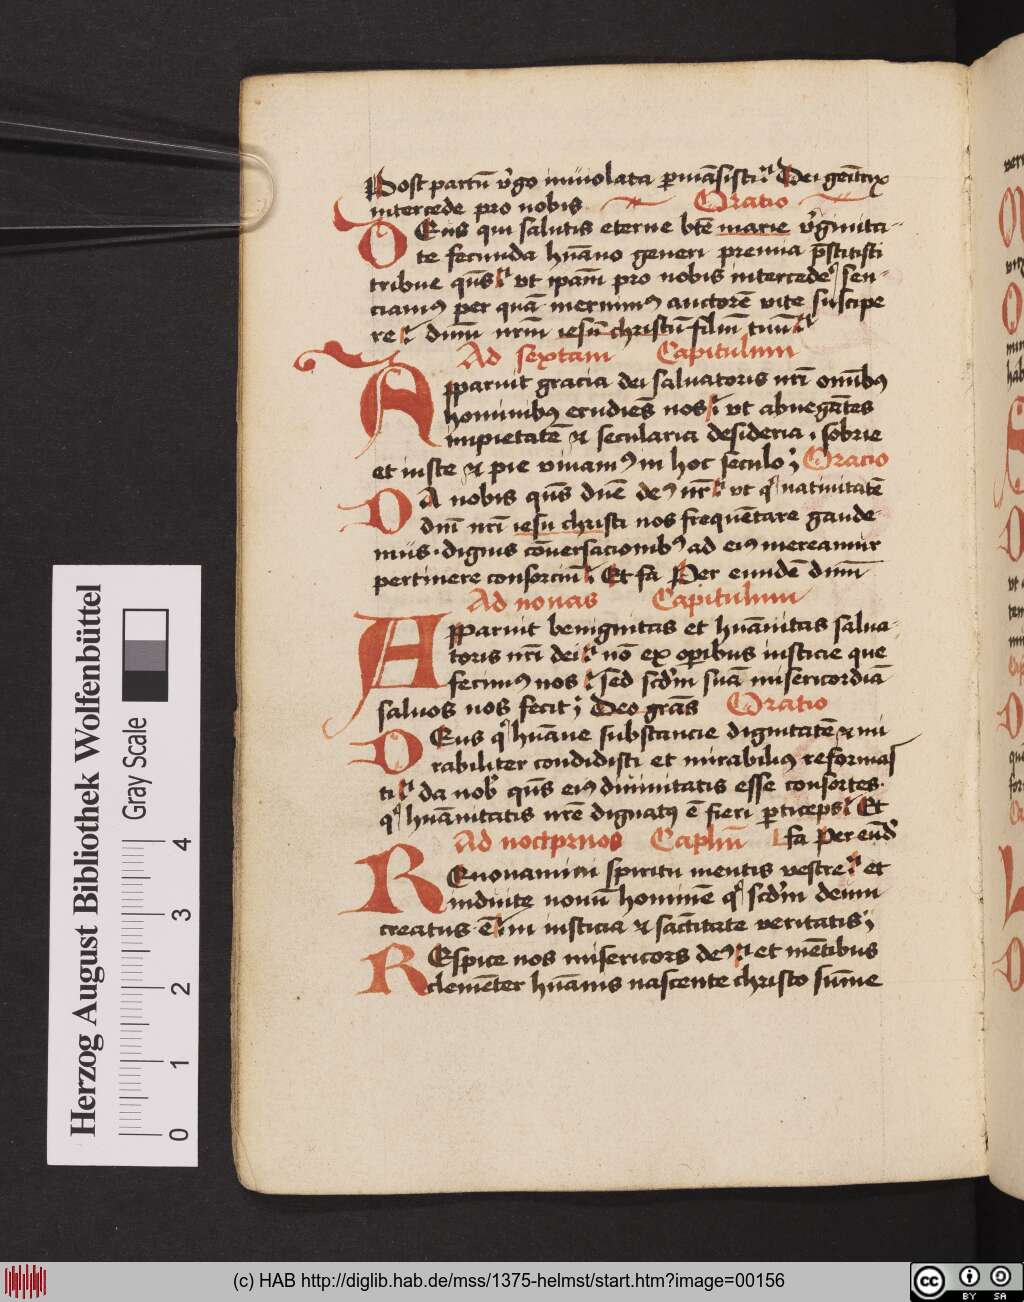 Post partū v̾go inuiolata p̱māsisti Dei geītrix
intercede pro nobis Oratio
DEus qui salutis eterne btē marie v̾ginita-
te fecunda hūano generi premia p̄stitisti
tribue qūs vt ip̄am pro nobis intercede sen-
ciamꝰ per quā meruimꝰ auctorē vite suscipe
re dnm̄ nrm̄ iesū christū filiū tuū
Ad sextam Capitulum
Apparuit gracia dei saluatoris nr̄i omībꝰ
hominibꝰ erudiēs nos vt abnegātes
impietatē ⁊ secularia desideria sobrie
et iuste ⁊ pie viuamꝰ in hoc seculo Oracio
DA nobis qūs dn̄e deꝰ nr̄ vt qͥ natiuitatē
dn̄i nr̄i iesu christi nos frequētare gaude-
mus dignis cōuersacionibꝰ ad eiꝰ mereamur
pertinere consorciū Et fa Per eundē dnm̄
Ad nonas Capitulum
Apparuit benignitas et hūanitas salua-
toris nr̄i dei nō ex oꝑibus iusticie que
fecimꝰ nos sed scd̄m suā misericordiā
saluos nos fecit Deo grās Oratio
DEus qͥ hūane substancie dignitatē ⁊ mi
rabiliter condidisti et mirabiliꝰ reformas
ti da nob̾ qūs eiꝰ diuinitatis esse consortes
qͥ hūanitatis nr̄e dignatꝰ ē fieri ꝑticeps Et
Ad nocturnos Caplm̄ fa Per eūd̾
REnouamini spiritu mentis vestre et
induite nouū hominē qͥ scd̄m deum
creatus ē in iusticia ⁊ sāctitate veritatis
REspice nos misericors deꝰ et mētibus
clemēter hūanis nascente christo sūme
Herzog August Bibliothek Wolfenbüttel
Gray Scale
0 1 2 3 4
(c) HAB http://diglib.hab.de/mss/1375-helmst/start.htm?image=00156
cc BY SA